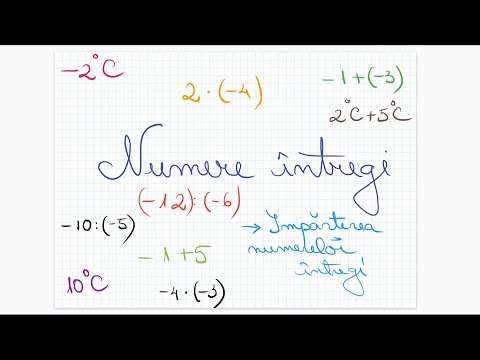 -2°C
2 · (-4)
-1+(-3)
2°C+5°C
Numere întregi
(-12):(-6)
-10:(-5)
→ Împărțirea
numerelor
întregi
-1+5
10°C
-4 · (-3)